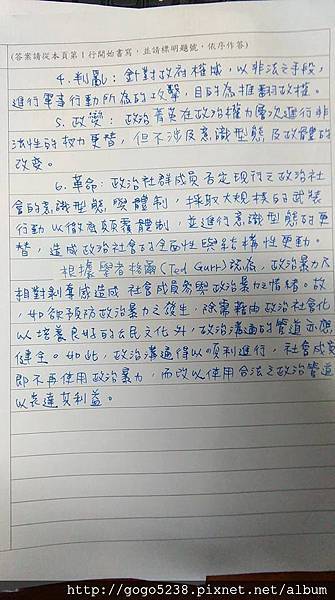 (答案請從本頁第1行開始書寫，並請標明題號，依序作答)
4. 判亂：針對政府權威，以非法之手段，
進行軍事行動所為的攻擊，目的為推翻政權。
5. 政變：政治菁英在政治權力層次進行非
法性的權力更替，但不涉及意識型態及政體的
改變。
6. 革命：政治社群成員否定現行之政治社
會的意識型態與體制，採取大規模的武裝
行動以徹底顛覆體制，並進行意識型態的更
替，造成政治社會的全面性與結構性更動。
根據學者格爾(Ted Gurr)認為，政治暴力乃
相對剝奪感造成社會成員參與政治暴力之情緒。故
，如欲預防政治暴力之發生，除需藉由政治社會化
以培養良好的公民文化外，政治溝通的管道亦應
健全。如此，政治溝通得以順利進行，社會成員
即不再使用政治暴力，而改以使用合法之政治管道
以表達其利益。
http://gogo5238.pixnet.net/album